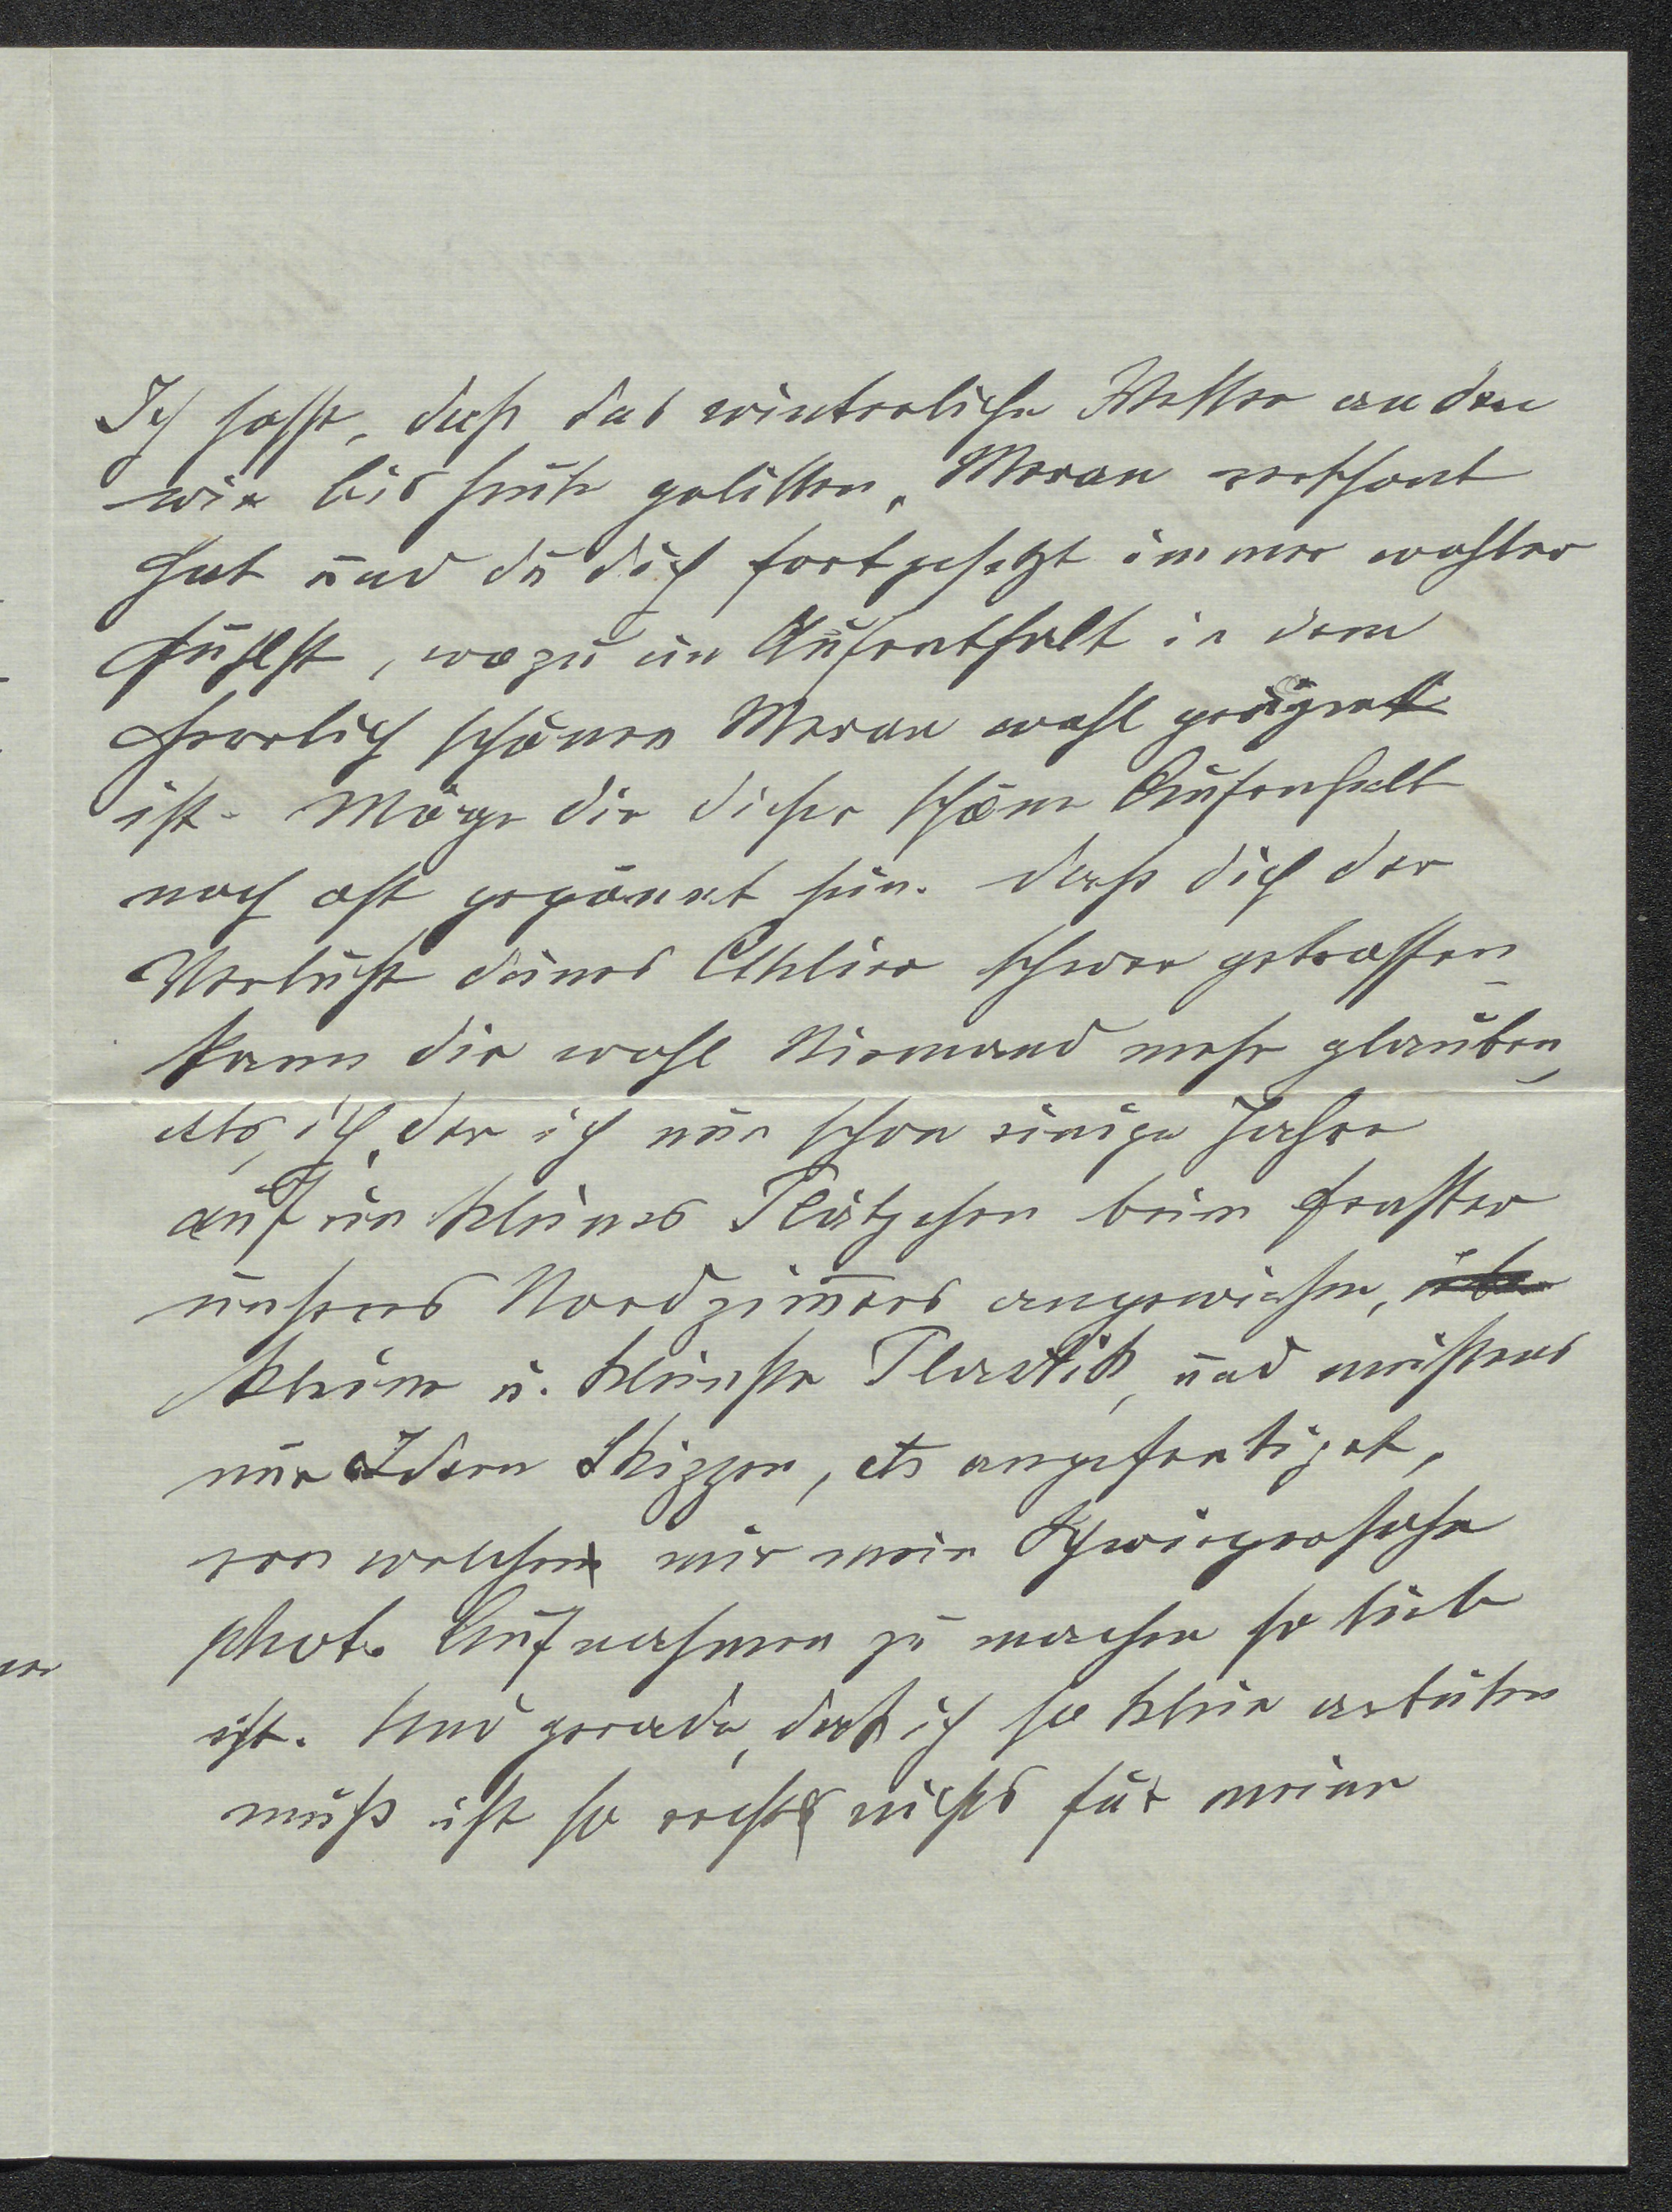 Ich hoffe, daß das winterliche Wetter an dem
wir bis heute gelitten, Meran verschont
hat und du dich fortgesetzt immer wohler
fühlst, wozu ein Aufenthalt in dem
herrlich schönen Meran wohl geeignet
ist. Möge dir dieser schöne Aufenhalt
noch oft gegönnt sein. Daß dich der
Verlust deines Atelier schwer getroffen
kann dir wohl Niemand mehr glauben,
als, ich, der ich nun schon einige Jahre
auf ein kleines Plätzchen beim Fenster
unseres Nordzimers angewiesen,
kleine u. kleinste Plastik, und meistens
nur Ideen Skizzen, etc angefertiget,
von welchen mir mein Schwiegersohn
phot. Aufnahmen zu machen so lieb
ist. Und gerade, daß ich so klein arbeiten
muß ist so recht nichts für meine